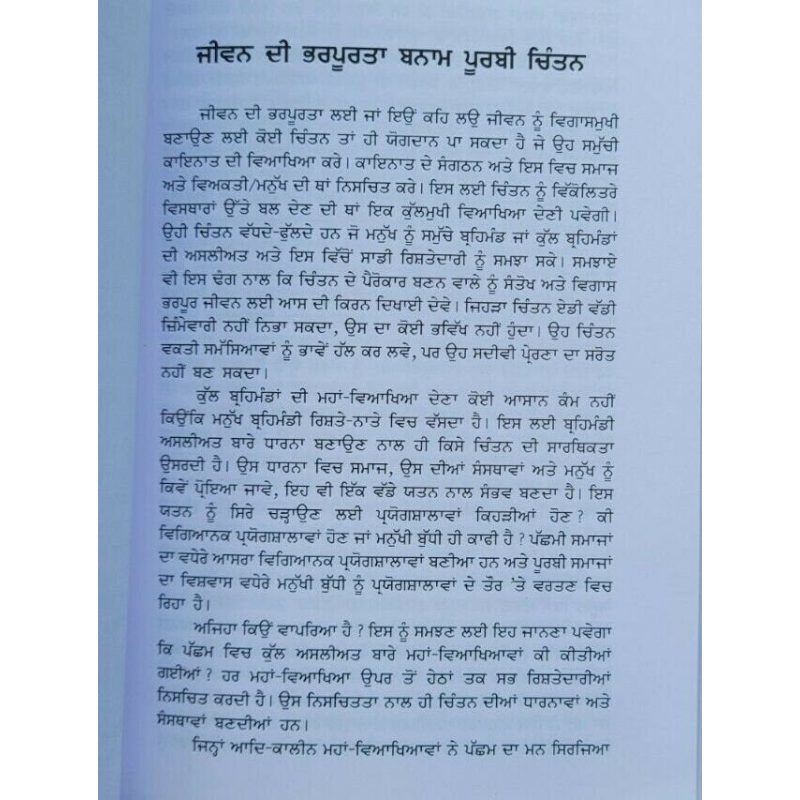 ਜੀਵਨ ਦੀ ਭਰਪੂਰਤਾ ਬਨਾਮ ਪੂਰਬੀ ਚਿੰਤਨ
ਜੀਵਨ ਦੀ ਭਰਪੂਰਤਾ ਲਈ ਜਾਂ ਇਉਂ ਕਹਿ ਲਉ ਜੀਵਨ ਨੂੰ ਵਿਗਾਸਮੁਖੀ
ਬਣਾਉਣ ਲਈ ਕੋਈ ਚਿੰਤਨ ਤਾਂ ਹੀ ਯੋਗਦਾਨ ਪਾ ਸਕਦਾ ਹੈ ਜੇ ਉਹ ਸਮੁੱਚੀ
ਕਾਇਨਾਤ ਦੀ ਵਿਆਖਿਆ ਕਰੇ। ਕਾਇਨਾਤ ਦੇ ਸੰਗਠਨ ਅਤੇ ਇਸ ਵਿਚ ਸਮਾਜ
ਅਤੇ ਵਿਅਕਤੀ/ਮਨੁੱਖ ਦੀ ਥਾਂ ਨਿਸਚਿਤ ਕਰੇ। ਇਸ ਲਈ ਚਿੰਤਨ ਨੂੰ ਵਿੱਕੋਲਿਤਰੇ
ਵਿਸਥਾਰਾਂ ਉੱਤੇ ਬਲ ਦੇਣ ਦੀ ਥਾਂ ਇਕ ਕੁੱਲਮੁਖੀ ਵਿਆਖਿਆ ਦੇਣੀ ਪਵੇਗੀ।
ਉਹੀ ਚਿੰਤਨ ਵੱਧਦੇ-ਫੁੱਲਦੇ ਹਨ ਜੋ ਮਨੁੱਖ ਨੂੰ ਸਮੁੱਚੇ ਬ੍ਰਹਿਮੰਡ ਜਾਂ ਕੁੱਲ ਬ੍ਰਹਿਮੰਡਾਂ
ਦੀ ਅਸਲੀਅਤ ਅਤੇ ਇਸ ਵਿੱਚੋਂ ਸਾਡੀ ਰਿਸ਼ਤੇਦਾਰੀ ਨੂੰ ਸਮਝਾ ਸਕੇ। ਸਮਝਾਏ
ਵੀ ਇਸ ਢੰਗ ਨਾਲ ਕਿ ਚਿੰਤਨ ਦੇ ਪੈਰੋਕਾਰ ਬਣਨ ਵਾਲੇ ਨੂੰ ਸੰਤੋਖ ਅਤੇ ਵਿਗਾਸ
ਭਰਪੂਰ ਜੀਵਨ ਲਈ ਆਸ ਦੀ ਕਿਰਨ ਦਿਖਾਈ ਦੇਵੇ। ਜਿਹੜਾ ਚਿੰਤਨ ਏਡੀ ਵੱਡੀ
ਜ਼ਿੰਮੇਵਾਰੀ ਨਹੀਂ ਨਿਭਾ ਸਕਦਾ, ਉਸ ਦਾ ਕੋਈ ਭਵਿੱਖ ਨਹੀਂ ਹੁੰਦਾ। ਉਹ ਚਿੰਤਨ
ਵਕਤੀ ਸਮੱਸਿਆਵਾਂ ਨੂੰ ਭਾਵੇਂ ਹੱਲ ਕਰ ਲਵੇ, ਪਰ ਉਹ ਸਦੀਵੀ ਪ੍ਰੇਰਣਾ ਦਾ ਸਰੋਤ
ਨਹੀਂ ਬਣ ਸਕਦਾ।
ਕੁੱਲ ਬ੍ਰਹਿਮੰਡਾਂ ਦੀ ਮਹਾਂ-ਵਿਆਖਿਆ ਦੇਣਾ ਕੋਈ ਆਸਾਨ ਕੰਮ ਨਹੀਂ
ਕਿਉਂਕਿ ਮਨੁੱਖ ਬ੍ਰਹਿਮੰਡੀ ਰਿਸ਼ਤੇ-ਨਾਤੇ ਵਿਚ ਵੱਸਦਾ ਹੈ। ਇਸ ਲਈ ਬ੍ਰਹਿਮੰਡੀ
ਅਸਲੀਅਤ ਬਾਰੇ ਧਾਰਨਾ ਬਣਾਉਣ ਨਾਲ ਹੀ ਕਿਸੇ ਚਿੰਤਨ ਦੀ ਸਾਰਥਿਕਤਾ
ਉਸਰਦੀ ਹੈ। ਉਸ ਧਾਰਨਾ ਵਿਚ ਸਮਾਜ, ਉਸ ਦੀਆਂ ਸੰਸਥਾਵਾਂ ਅਤੇ ਮਨੁੱਖ ਨੂੰ
ਕਿਵੇਂ ਪ੍ਰੋਇਆ ਜਾਵੇ, ਇਹ ਵੀ ਇੱਕ ਵੱਡੇ ਯਤਨ ਨਾਲ ਸੰਭਵ ਬਣਦਾ ਹੈ। ਇਸ
ਯਤਨ ਨੂੰ ਸਿਰੇ ਚੜ੍ਹਾਉਣ ਲਈ ਪ੍ਰਯੋਗਸ਼ਾਲਾਵਾਂ ਕਿਹੜੀਆਂ ਹੋਣ ? ਕੀ
ਵਿਗਿਆਨਕ ਪ੍ਰਯੋਗਸ਼ਾਲਾਵਾਂ ਹੋਣ ਜਾਂ ਮਨੁੱਖੀ ਬੁੱਧੀ ਹੀ ਕਾਫੀ ਹੈ ? ਪੱਛਮੀ ਸਮਾਜਾਂ
ਦਾ ਵਧੇਰੇ ਆਸਰਾ ਵਿਗਿਆਨਕ ਪ੍ਰਯੋਗਸ਼ਾਲਾਵਾਂ ਬਣੀਆ ਹਨ ਅਤੇ ਪੂਰਬੀ ਸਮਾਜਾਂ
ਦਾ ਵਿਸ਼ਵਾਸ ਵਧੇਰੇ ਮਨੁੱਖੀ ਬੁੱਧੀ ਨੂੰ ਪ੍ਰਯੋਗਸ਼ਾਲਾਵਾਂ ਦੇ ਤੌਰ 'ਤੇ ਵਰਤਣ ਵਿਚ
ਰਿਹਾ ਹੈ।
ਅਜਿਹਾ ਕਿਉਂ ਵਾਪਰਿਆ ਹੈ ? ਇਸ ਨੂੰ ਸਮਝਣ ਲਈ ਇਹ ਜਾਨਣਾ ਪਵੇਗਾ
ਕਿ ਪੱਛਮ ਵਿਚ ਕੁੱਲ ਅਸਲੀਅਤ ਬਾਰੇ ਮਹਾਂ-ਵਿਆਖਿਆਵਾਂ ਕੀ ਕੀਤੀਆਂ
ਗਈਆਂ ? ਹਰ ਮਹਾਂ-ਵਿਆਖਿਆ ਉਪਰ ਤੋਂ ਹੇਠਾਂ ਤਕ ਸਭ ਰਿਸ਼ਤੇਦਾਰੀਆਂ
ਨਿਸਚਿਤ ਕਰਦੀ ਹੈ। ਉਸ ਨਿਸਚਿਤਤਾ ਨਾਲ ਹੀ ਚਿੰਤਨ ਦੀਆਂ ਧਾਰਨਾਵਾਂ ਅਤੇ
ਸੰਸਥਾਵਾਂ ਬਣਦੀਆਂ ਹਨ।
ਜਿਨ੍ਹਾਂ ਆਦਿ-ਕਾਲੀਨ ਮਹਾਂ-ਵਿਆਖਿਆਵਾਂ ਨੇ ਪੱਛਮ ਦਾ ਮਨ ਸਿਰਜਿਆ